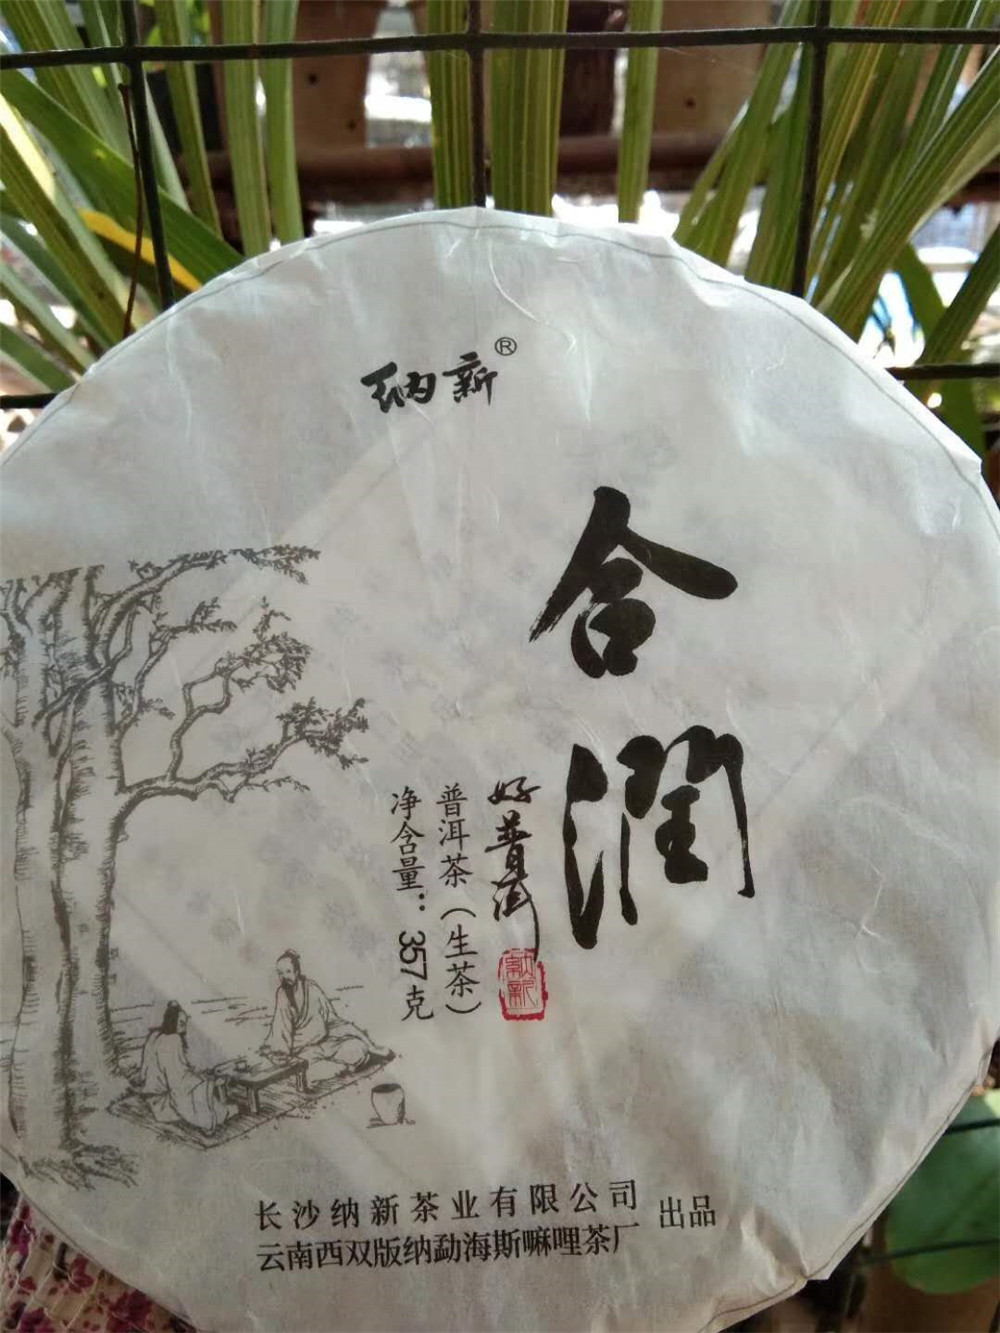 纳新®
合润
好普洱
普洱茶（生茶）
净含量：357克
纳新
长沙纳新茶业有限公司
云南西双版纳勐海斯嘛哩茶厂
出品